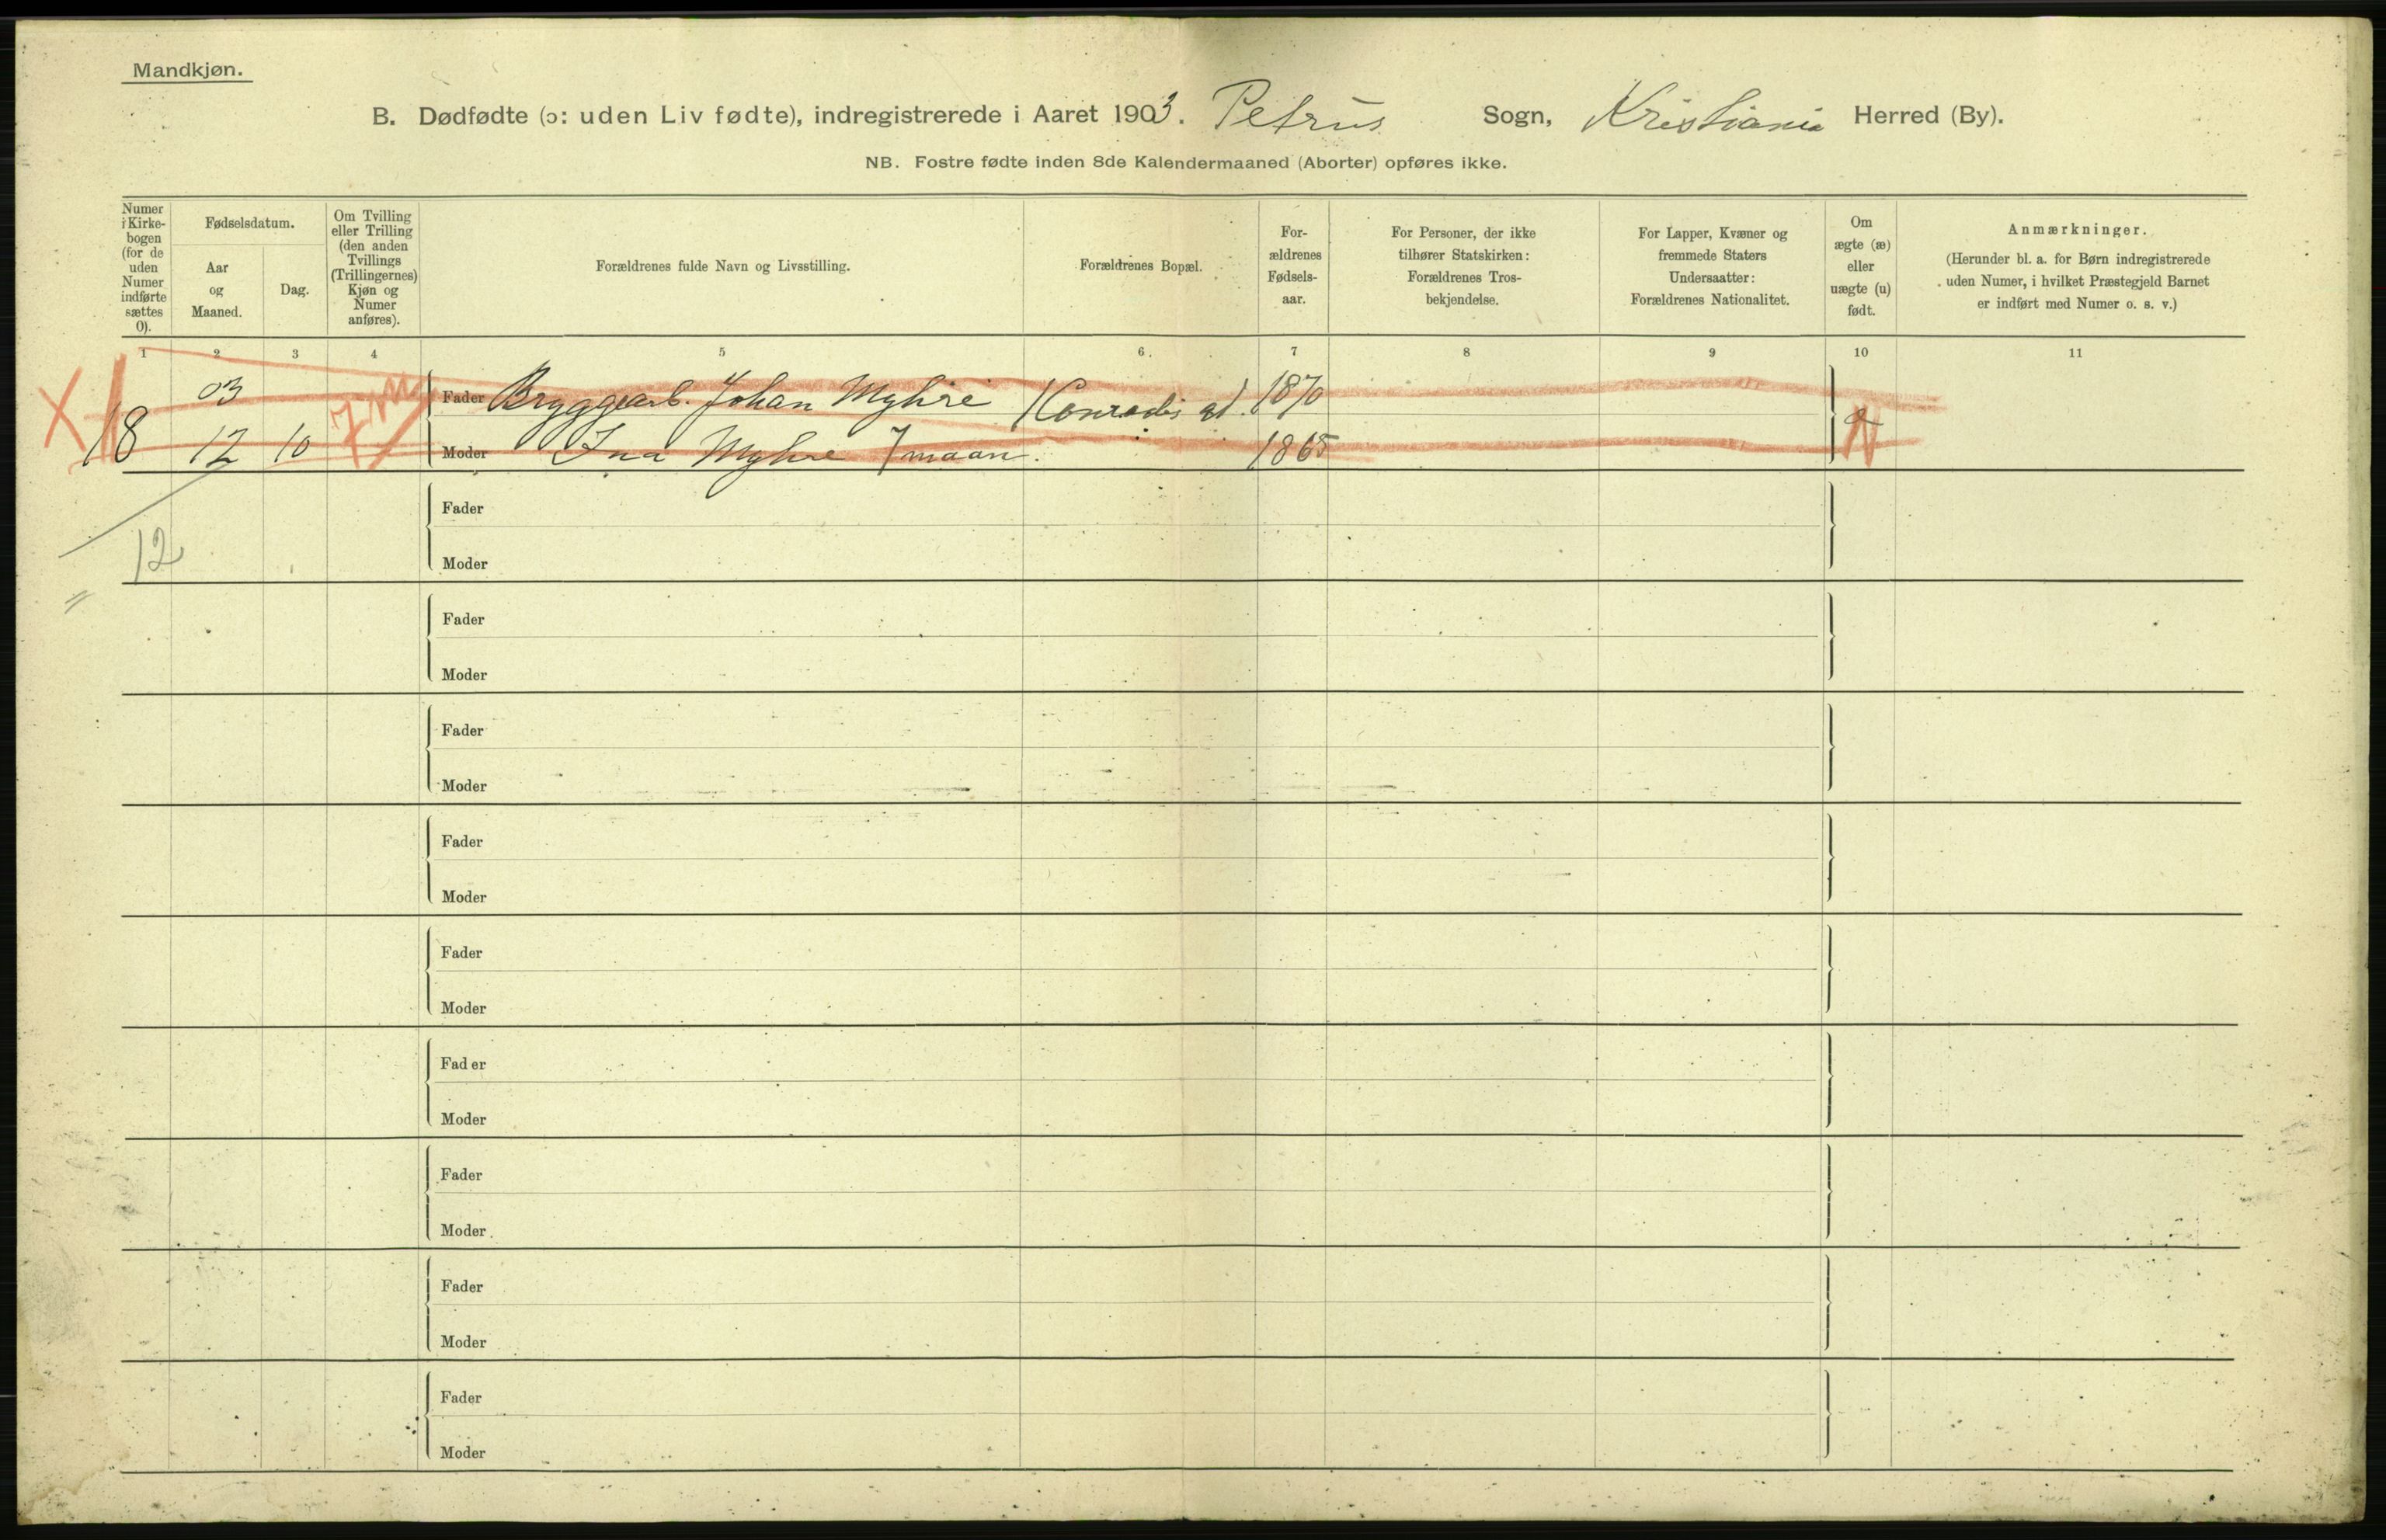 Mandkjøn.
B. Dødfødte (ɔ: uden Liv fødte), indregistrerede i Aaret 1903. Petrus Sogn, Kristiania Herred (By).
NB. Fostre fødte inden 8de Kalendermaaned (Aborter) opføres ikke.
Numer
i Kirke-
bogen
(for de
uden
Numer
indførte
sættes
0).
Fødselsdatum.
Aar
og
Maaned.
Dag.
Om Tvilling
eller Trilling
(den anden
Tvillings
(Trillingernes)
Kjøn og
Numer
anføres).
Forældrenes fulde Navn og Livsstilling.
Forældrenes Bopæl.
For-
ældrenes
Fødsels-
aar.
For Personer, der ikke
tilhører Statskirken:
Forældrenes Tros-
bekjendelse.
For Lapper, Kvæner og
fremmede Staters
Undersaatter:
Forældrenes Nationalitet.
Om
ægte (æ)
eller
uægte (u)
født.
Anmærkninger.
(Herunder bl. a. for Børn indregistrerede
uden Numer, i hvilket Præstegjeld Barnet
er indført med Numer o. s. v.)
1 2 3 4 5 6. 7 8 9 10 11
X
03
7 m
Fader Bryggearb. Johan Myhre Conradis gd. 1870
18 12 10 Moder Ina Myhre 7 maan. 1865
Fader
12
Moder
Fader
Moder
Fader
Moder
Fader
Moder
Fader
Moder
Fader
Moder
Fader
Moder
Fader
Moder
Fader
Moder